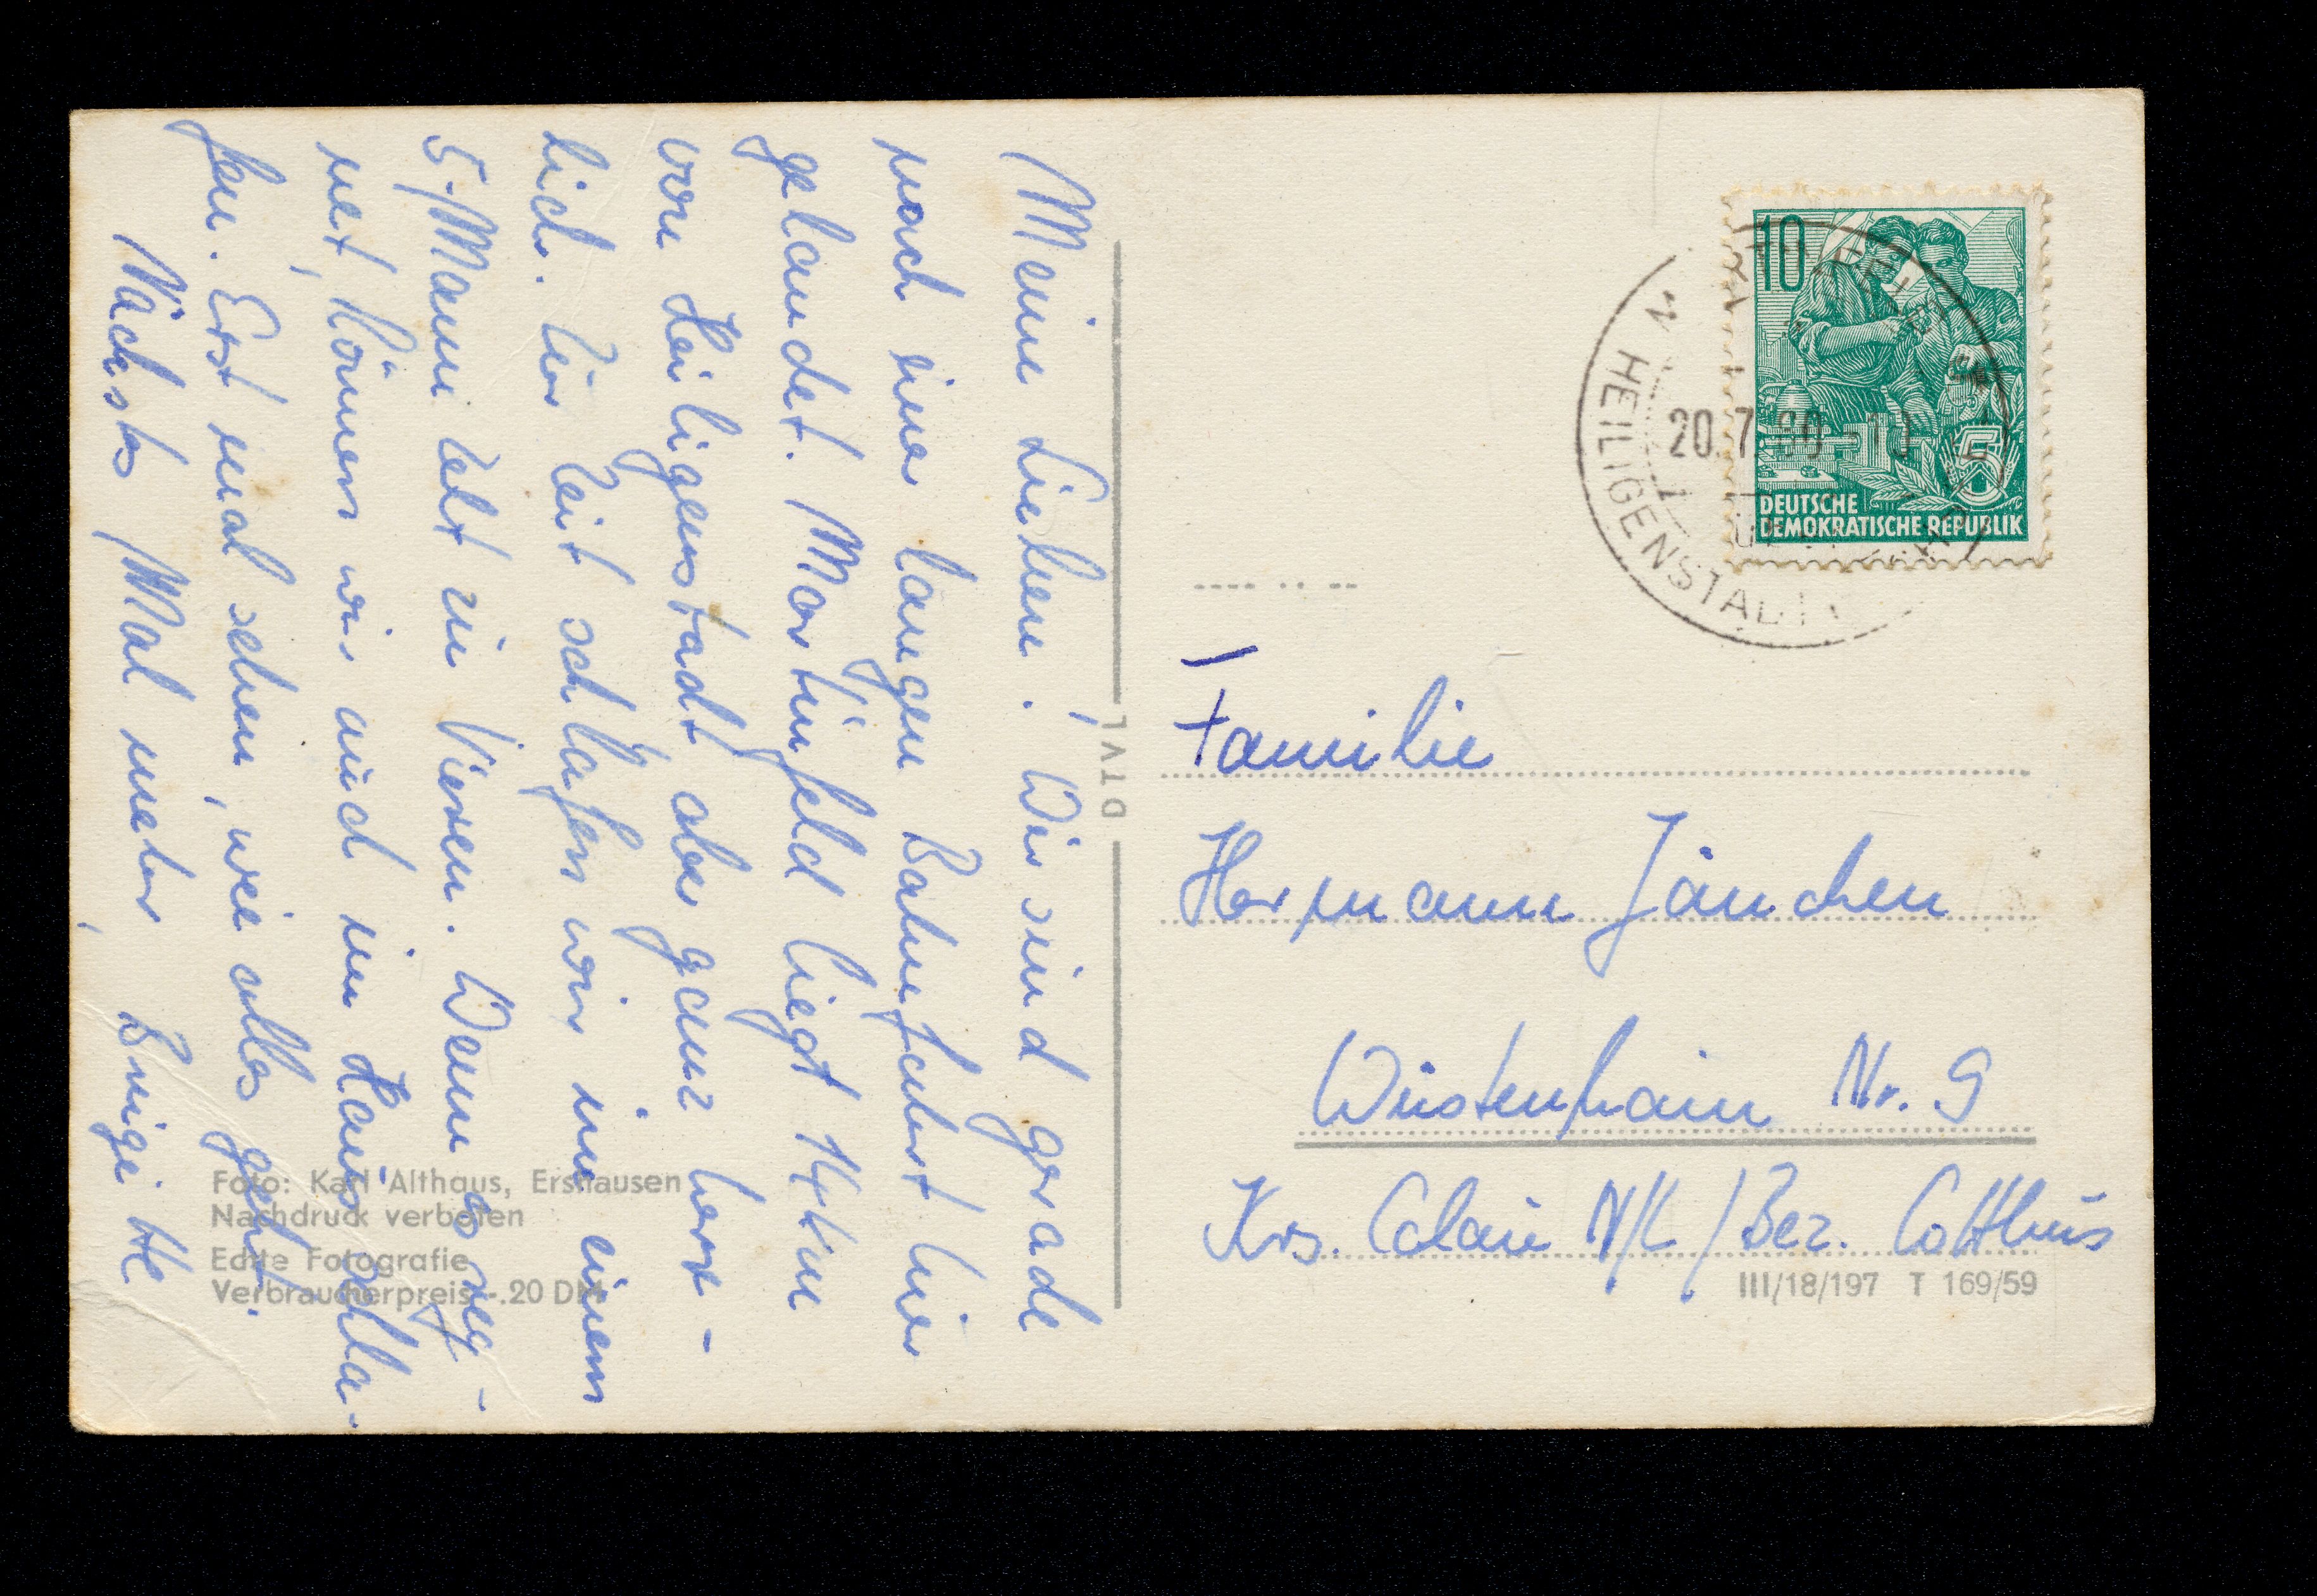 Meine Lieben! Wir sind gerade
nach einer langen Bahnfahrt hier
gelandet. Martinfeld liegt 14 km
von Heiligenstadt aber ganz herr-
lich. Zur Zeit schlafen wir in einem
5-Mann Zelt zu Vieren. Wenn es reg-
net, können wir auch im Haus schla-
fen. Erst mal sehen, wie alles geht.
Nächstes Mal mehr, Brigitte
DTVL
10
DEUTSCHE
DEMOKRATISCHE REPUBLIK
5
HEILIGENSTADT
20.7.60-10
Familie
Hermann Jänchen
Wüstenhain Nr. 9
Krs. Calau N/L / Bez. Cottbus
III/18/197 T 169/59
Foto: Karl Althaus, Ershausen
Nachdruck verboten
Echte Fotografie
Verbraucherpreis -.20 DM